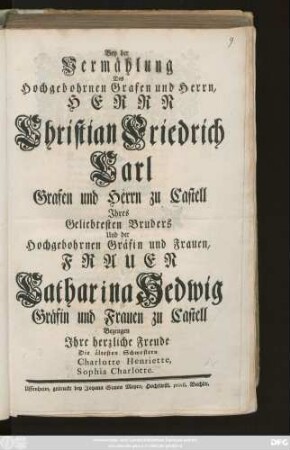 9
Bey der
Vermählung
Des
Hochgebohrnen Grafen und Herrn,
HERRN
Christian Friedrich
Carl
Grafen und Herrn zu Castell
Ihres
Geliebtesten Bruders
Und der
Hochgebohrnen Gräfin und Frauen,
FRAUEN
Catharina Hedwig
Gräfin und Frauen zu Castell
Bezeugen
Ihre herzliche Freude
Die ältesten Schwestern
Charlotte Henriette,
Sophia Charlotte.
Uffenheim, gedruckt bey Johann Simon Meyer, Hochfürstl. privil. Buchdr.